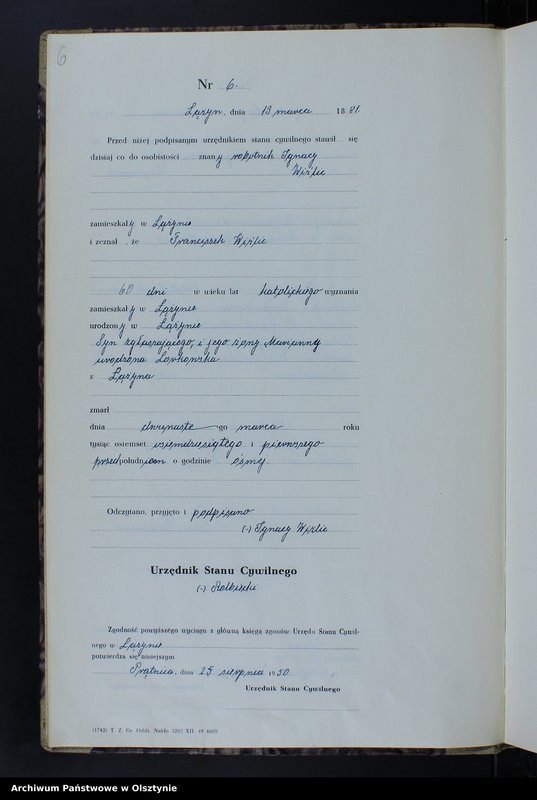 6
Nr 6.
Łążyn, dnia 13 marca 1881.
Przed niżej podpisanym urzędnikiem stanu cywilnego stawił się
dzisiaj co do osobistości znany robotnik Ignacy
zamieszkały w Łążynie
i zeznał, że Franciszek
60 dni w wieku lat katolickiego wyznania
zamieszkały w Łążynie
urodzony w Łążynie
Syn zgłaszającego, i jego żony Marianny
urodzona
z Łążyna
zmarł
dnia dwunaste-go marca roku
tysiąc osiemset osiemdziesiątego i pierwszego
przedpołudniem o godzinie ósmej.
Odczytano, przyjęto i podpisano
(-) Ignacy
Urzędnik Stanu Cywilnego
(-)
Zgodność powyższego wyciągu z główną księgą zgonów Urzędu Stanu Cywil-
nego w Łążynie
potwierdza się niniejszym
Prątnica, dnia 25 sierpnia 1950
Urzędnik Stanu Cywilnego
(1742) T. Z. Gr. Oddz. Nakło 2202 XII. 49 4669
Archiwum Państwowe w Olsztynie